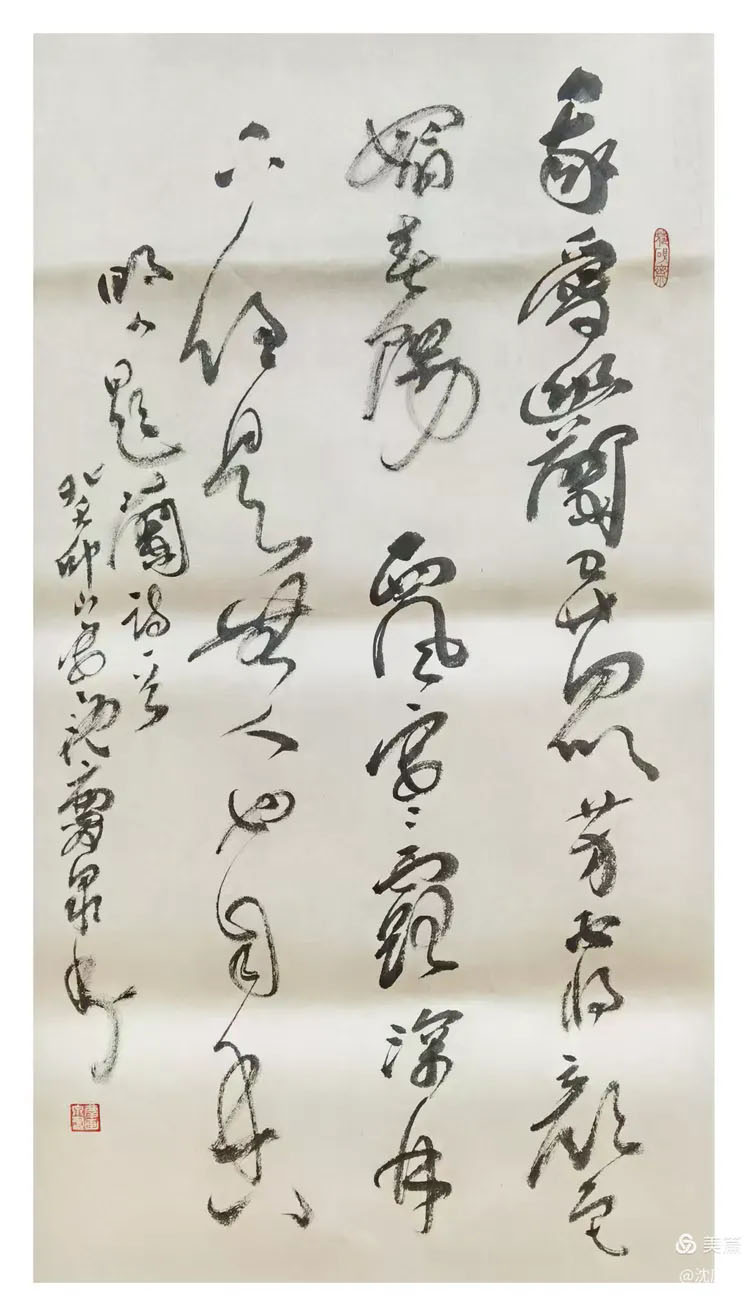 我愛幽蘭异眾芳不將顏色
媚春陽西風寒露深林
下任是無人也自香
明人題蘭詩一首
癸卯小寒沈泉書
美篇
@沈